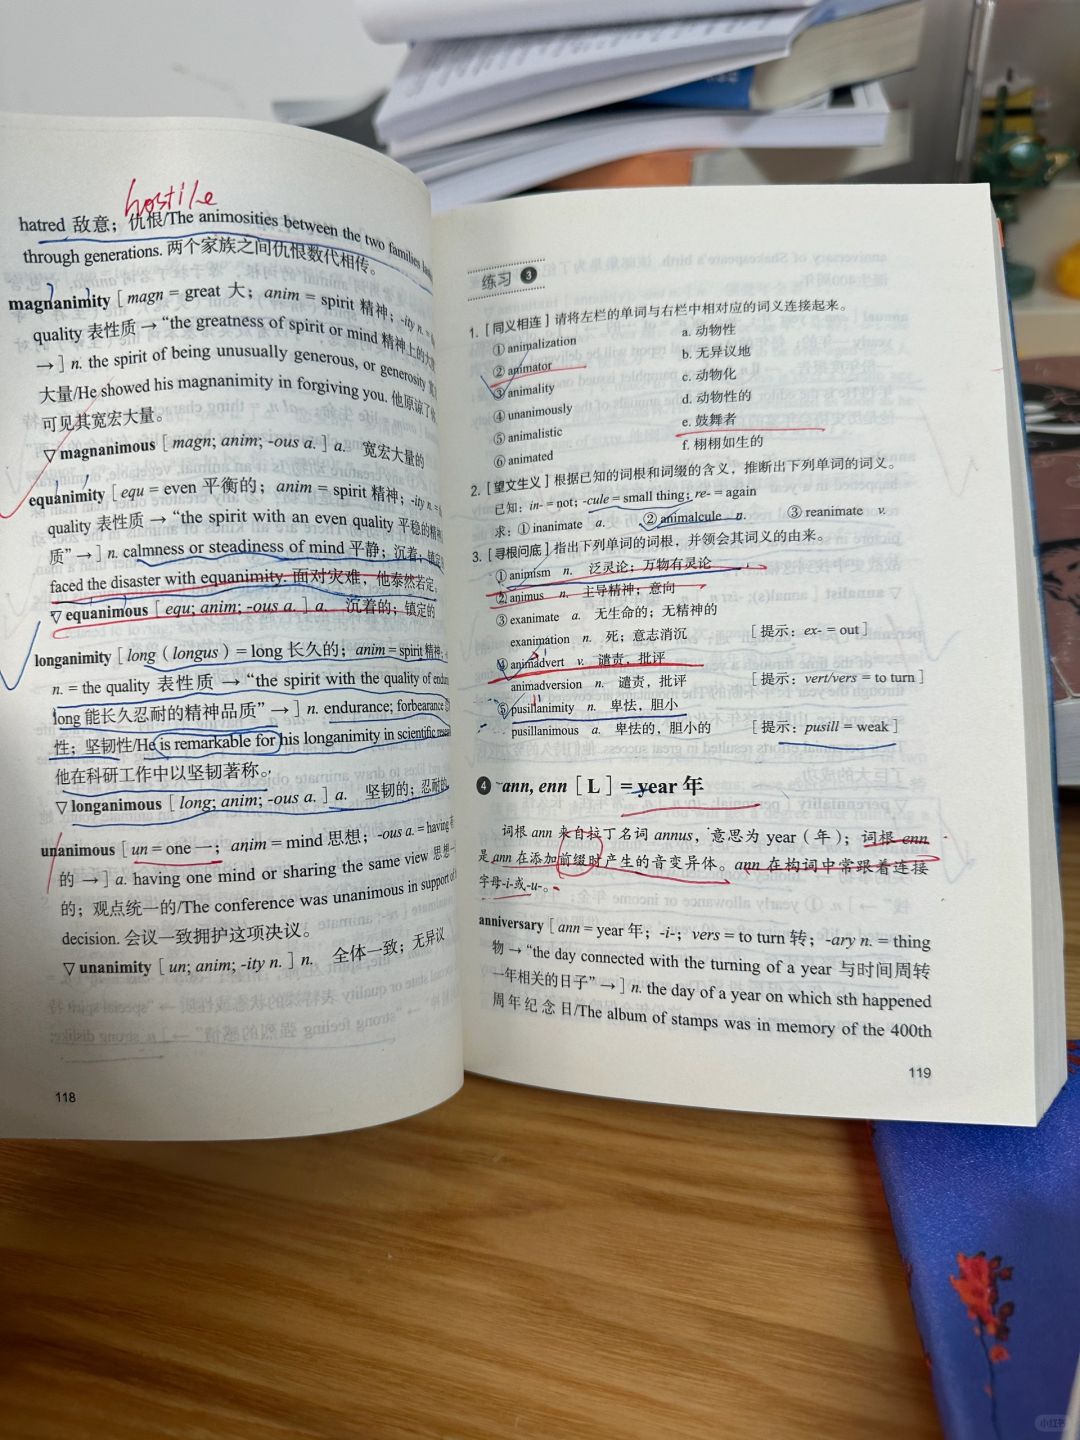 hostile
hatred 敌意；仇恨/The animosities between the two families
through generations. 两个家族之间仇恨数代相传。
magnanimity [magn = great 大；anim = spirit 精神；-ity n. =
quality 表性质 → “the greatness of spirit or mind 精神上的大度
→] n. the spirit of being unusually generous, or generosity
大量/He showed his magnanimity in forgiving you. 他原谅了你
可见其宽宏大量。
▽ magnanimous [magn; anim; -ous a.] a. 宽宏大量的
equanimity [equ = even 平衡的；anim = spirit 精神；-ity n. =
quality 表性质 → “the spirit with an even quality 平稳的精神
质” →] n. calmness or steadiness of mind 平静；沉着；镇定
faced the disaster with equanimity. 面对灾难，他泰然若定。
▽ equanimous [equ; anim; -ous a.] a. 沉着的；镇定的
longanimity [long (longus) = long 长久的；anim = spirit 精神；
n. = the quality 表性质 → “the spirit with the quality of
long 能长久忍耐的精神品质” →] n. endurance; forbearance
性；坚韧性/He is remarkable for his longanimity in scientific
他在科研工作中以坚韧著称。
▽ longanimous [long; anim; -ous a.] a. 坚韧的；忍耐的
unanimous [un = one 一；anim = mind 思想；-ous a. = having
的 →] a. having one mind or sharing the same view 思想一
的；观点统一的/The conference was unanimous in support of
decision. 会议一致拥护这项决议。
▽ unanimity [un; anim; -ity n.] n. 全体一致；无异议
118
练习 3
1. [同义相连] 请将左栏的单词与右栏中相对应的词义连接起来。
① animalization a. 动物性
② animator b. 无异议地
③ animality c. 动物化
④ unanimously d. 动物性的
⑤ animalistic e. 鼓舞者
⑥ animated f. 栩栩如生的
2. [望文生义] 根据已知的词根和词缀的含义，推断出下列单词的词义。
已知：in- = not; -cule = small thing; re- = again
求：① inanimate a. ② animalcule n. ③ reanimate v.
3. [寻根问底] 指出下列单词的词根，并领会其词义的由来。
① animism n. 泛灵论；万物有灵论
② animus n. 主导精神；意向
③ exanimate a. 无生命的；无精神的
exanimation n. 死；意志消沉 [提示：ex- = out]
④ animadvert v. 谴责，批评
animadversion n. 谴责，批评 [提示：vert/vers = to turn]
⑤ pusillanimity n. 卑怯，胆小
pusillanimous a. 卑怯的，胆小的 [提示：pusill = weak]
4 ann, enn [L] = year 年
词根 ann 来自拉丁名词 annus，意思为 year（年）；词根 enn
是 ann 在添加前缀时产生的音变异体。ann 在构词中常跟着连接
字母-i-或-u-。
anniversary [ann = year 年；-i-；vers = to turn 转；-ary n. = thing
物 → “the day connected with the turning of a year 与时间周转
一年相关的日子” →] n. the day of a year on which sth happened
周年纪念日/The album of stamps was in memory of the 400th
119
小红书